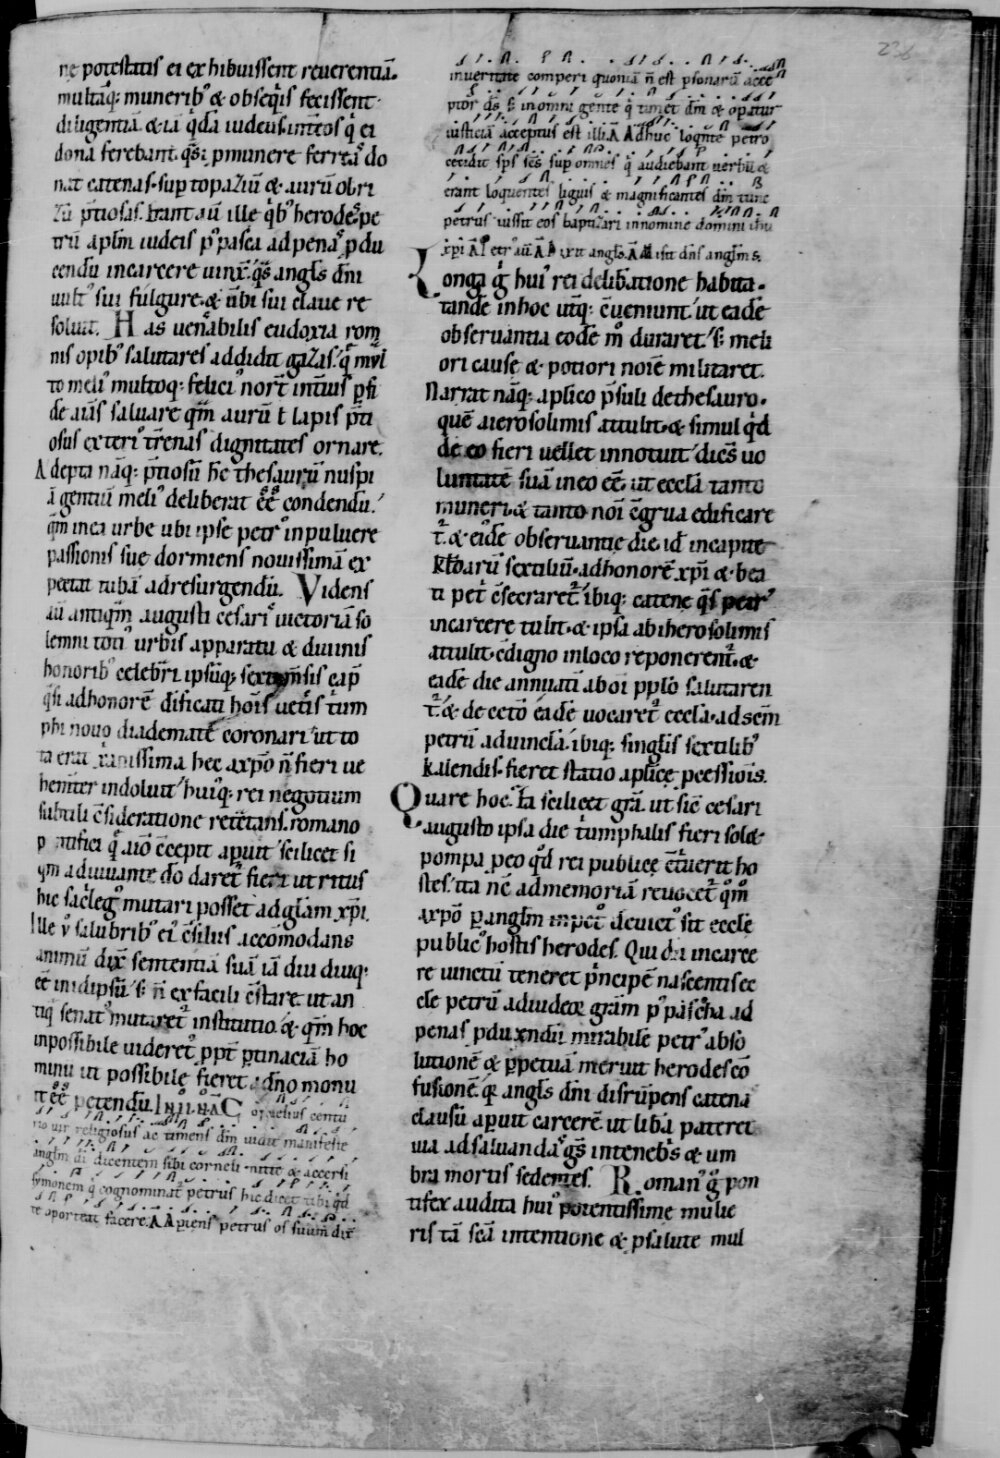 nę potestatis ei exhibuissent reuerentiā.
multaq; munerib' & obseq̄is fecissent
diligentiā. & iā q̄dā iudeus int̄ eos q̄ ei
dona ferebant. q̄si p munere ferreas do
nat catenas. sup topaziū & aurū obri
zū p̄tiosas. Erant aū ille q̄b' herodes pe
trū aplm iudeis p' pasca ad penas pdu
cendū in carcere uinx. q̄s angls dn̄i
uult' sui fulgure. & ūbi sui claue re
soluit. Has uen̄abilis eudoxia rom
nis opib' salutares addidit gazas. q̄m uł
to meli' multoq; felici' nor̄t int̄ius p̄si
de aūs saluare q̄m aurū ł lapis p̄ti
osus exteri' t̄renas dignitates ornare.
Adepta nāq; p̄tiosū hc̄ thesaurū nuspi
ā gentiū meli' deliberat eē condendū.
q̄m in ea urbe ubi ipse petr' in puluere
passionis sue dormiens nouissimā ex
pectat tubā ad resurgendū. Videns
aū antiq̄m augusti cesaris uictoriā so
lemni toti' urbis apparatu & diuinis
honorib' celebr̄i ipsūq; sextum m̄sis cap̄
q̄si ad honorē dificati hoīs uet̄is t̄um
phi nouo diademate coronari ut to
ta erat xp̄anissima hec a xp̄o n̄ fieri ue
hem̄ter indoluit hui'q; rei negotium
subtili c̄sideratione ret̄ctans. romano
pontifici q̄ aīo c̄cepit apuit scilicet si
q̄m adiuuante dō daret̄ fieri ut ritus
hic sac̄leg' mutari posset ad glām xp̄i.
Ille ū salubrib' ei' c̄siliis accōmodans
animū dix̄ sententiā suā iā diu diuq;
eē in idipsū s; n̄ ex facili c̄stare ut an
tiq̄ senat' mutaret̄ institutio. & q̄m hoc
inpossibile uideret̄ ppt̄ p̄tinaciā ho
minū ut possibile fieret a dn̄o monu
it eē petendū. Cornelius centu
rio uir religiosus ac timens dm̄ uidit manifeste
anglm dī dicentem sibi corneli mitte & accersi
symonem q̄ cognominat̄ petrus hic dicet tibi q̄d
te oporteat facere. A Apiens petrus os suum dix̄
in ueritate comperi quoniā n̄ est psonarū acce
ptor d̄s s; in omni gente q̄ timet dm̄ & operatur
iusticiā acceptus est illi. A Adhuc loq̄nte petro
cecidit sp̄s sc̄s sup omnes q̄ audiebant uerbū &
erant loquentes liguis & magnificantes dm̄ tunc
petrus iussit eos baptizari in nomine domini ihu
xp̄i A Petr' aū. A Dixit angls. A Misit dn̄s anglm s.
Longa g̊ hui' rei deliberatione habita.
tandē in hoc ut̄q; c̄ueniunt ut eadē
obseruantia eodē m̊ duraret s; meli
ori cause & potiori noīe militaret.
Narrat nāq; aplico p̄suli de thesauro.
quē a ierosolimis attulit. & simul q̄d
de eo fieri uellet innotuit dicēs uo
luntatē suā in eo eē ut eccłā tanto
muneri & tanto nōi c̄grua edificare
t̄. & ei'dē obseruantie die id in capite
kłdarū sextiliū. ad honorē xp̄i & bea
ti pet̄ c̄secraret̄ ibiq; catenę q̄s petr'
in carcere tulit. & ipsa ab iherosolimis
attulit. c̄digno in loco reponerent̄. &
eadē die annuati ab oī pplō salutaren
t̄. & de cet̄o eadē uocaret̄ eccła. ad scm̄
petrū ad uincła. ibiq; singlis sextilib'
kalendis. fieret statio aplicę pcessiois.
Quare hoc. Ea scilicet grā. ut sic̄ cesari
augusto ipsa die t̄umphalis fieri sol&
pompa. p eo q̄d rei publicę c̄t̄uerit ho
stes. ita nē ad memoriā reuocet̄ q̄m̊
a xp̄o p anglm deuict' sit eccłe
public' hostis herodes. Qui dū in carce
re uinctū teneret p̄ncipē nascentis ec
cłe petrū ad iudeoꝝ grām p' pascha ad
penas pducendū mirabile petr' abso
lutionē & ppetuā meruit herodes cō
fusionē. q̄ angls dn̄i disrūpens catenā
clausū apuit carcerē ut libā pateret
uia ad saluandas q̄s in teneb̄s & um
bra mortis sedentes. Roman' g̊ pon
tifex audita hui' potentissime mulie
ris tā scā intentione & p salute mul